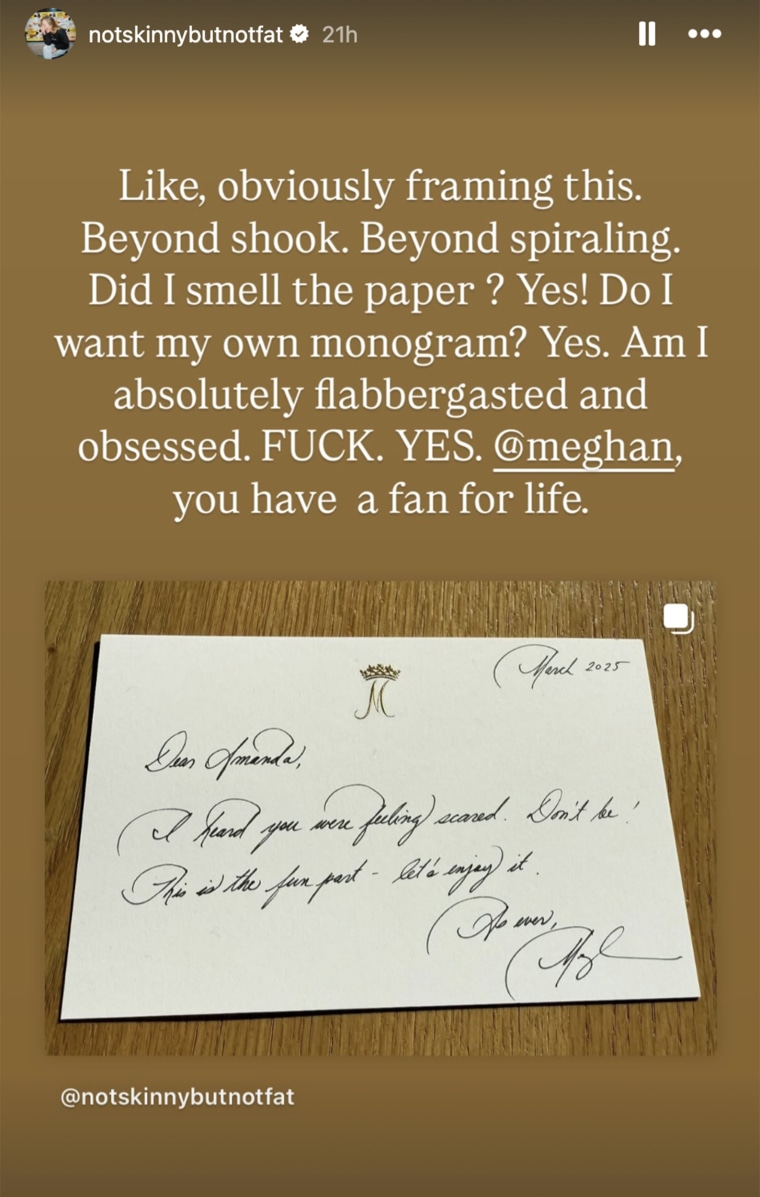 notskinnybutnotfat 21h
Like, obviously framing this.
Beyond shook. Beyond spiraling.
Did I smell the paper ? Yes! Do I
want my own monogram? Yes. Am I
absolutely flabbergasted and
obsessed. FUCK. YES. @meghan,
you have a fan for life.
March 2025
M
Dear Amanda,
I heard you were feeling scared. Don't be!
This is the fun part - let's enjoy it.
As ever,
@notskinnybutnotfat